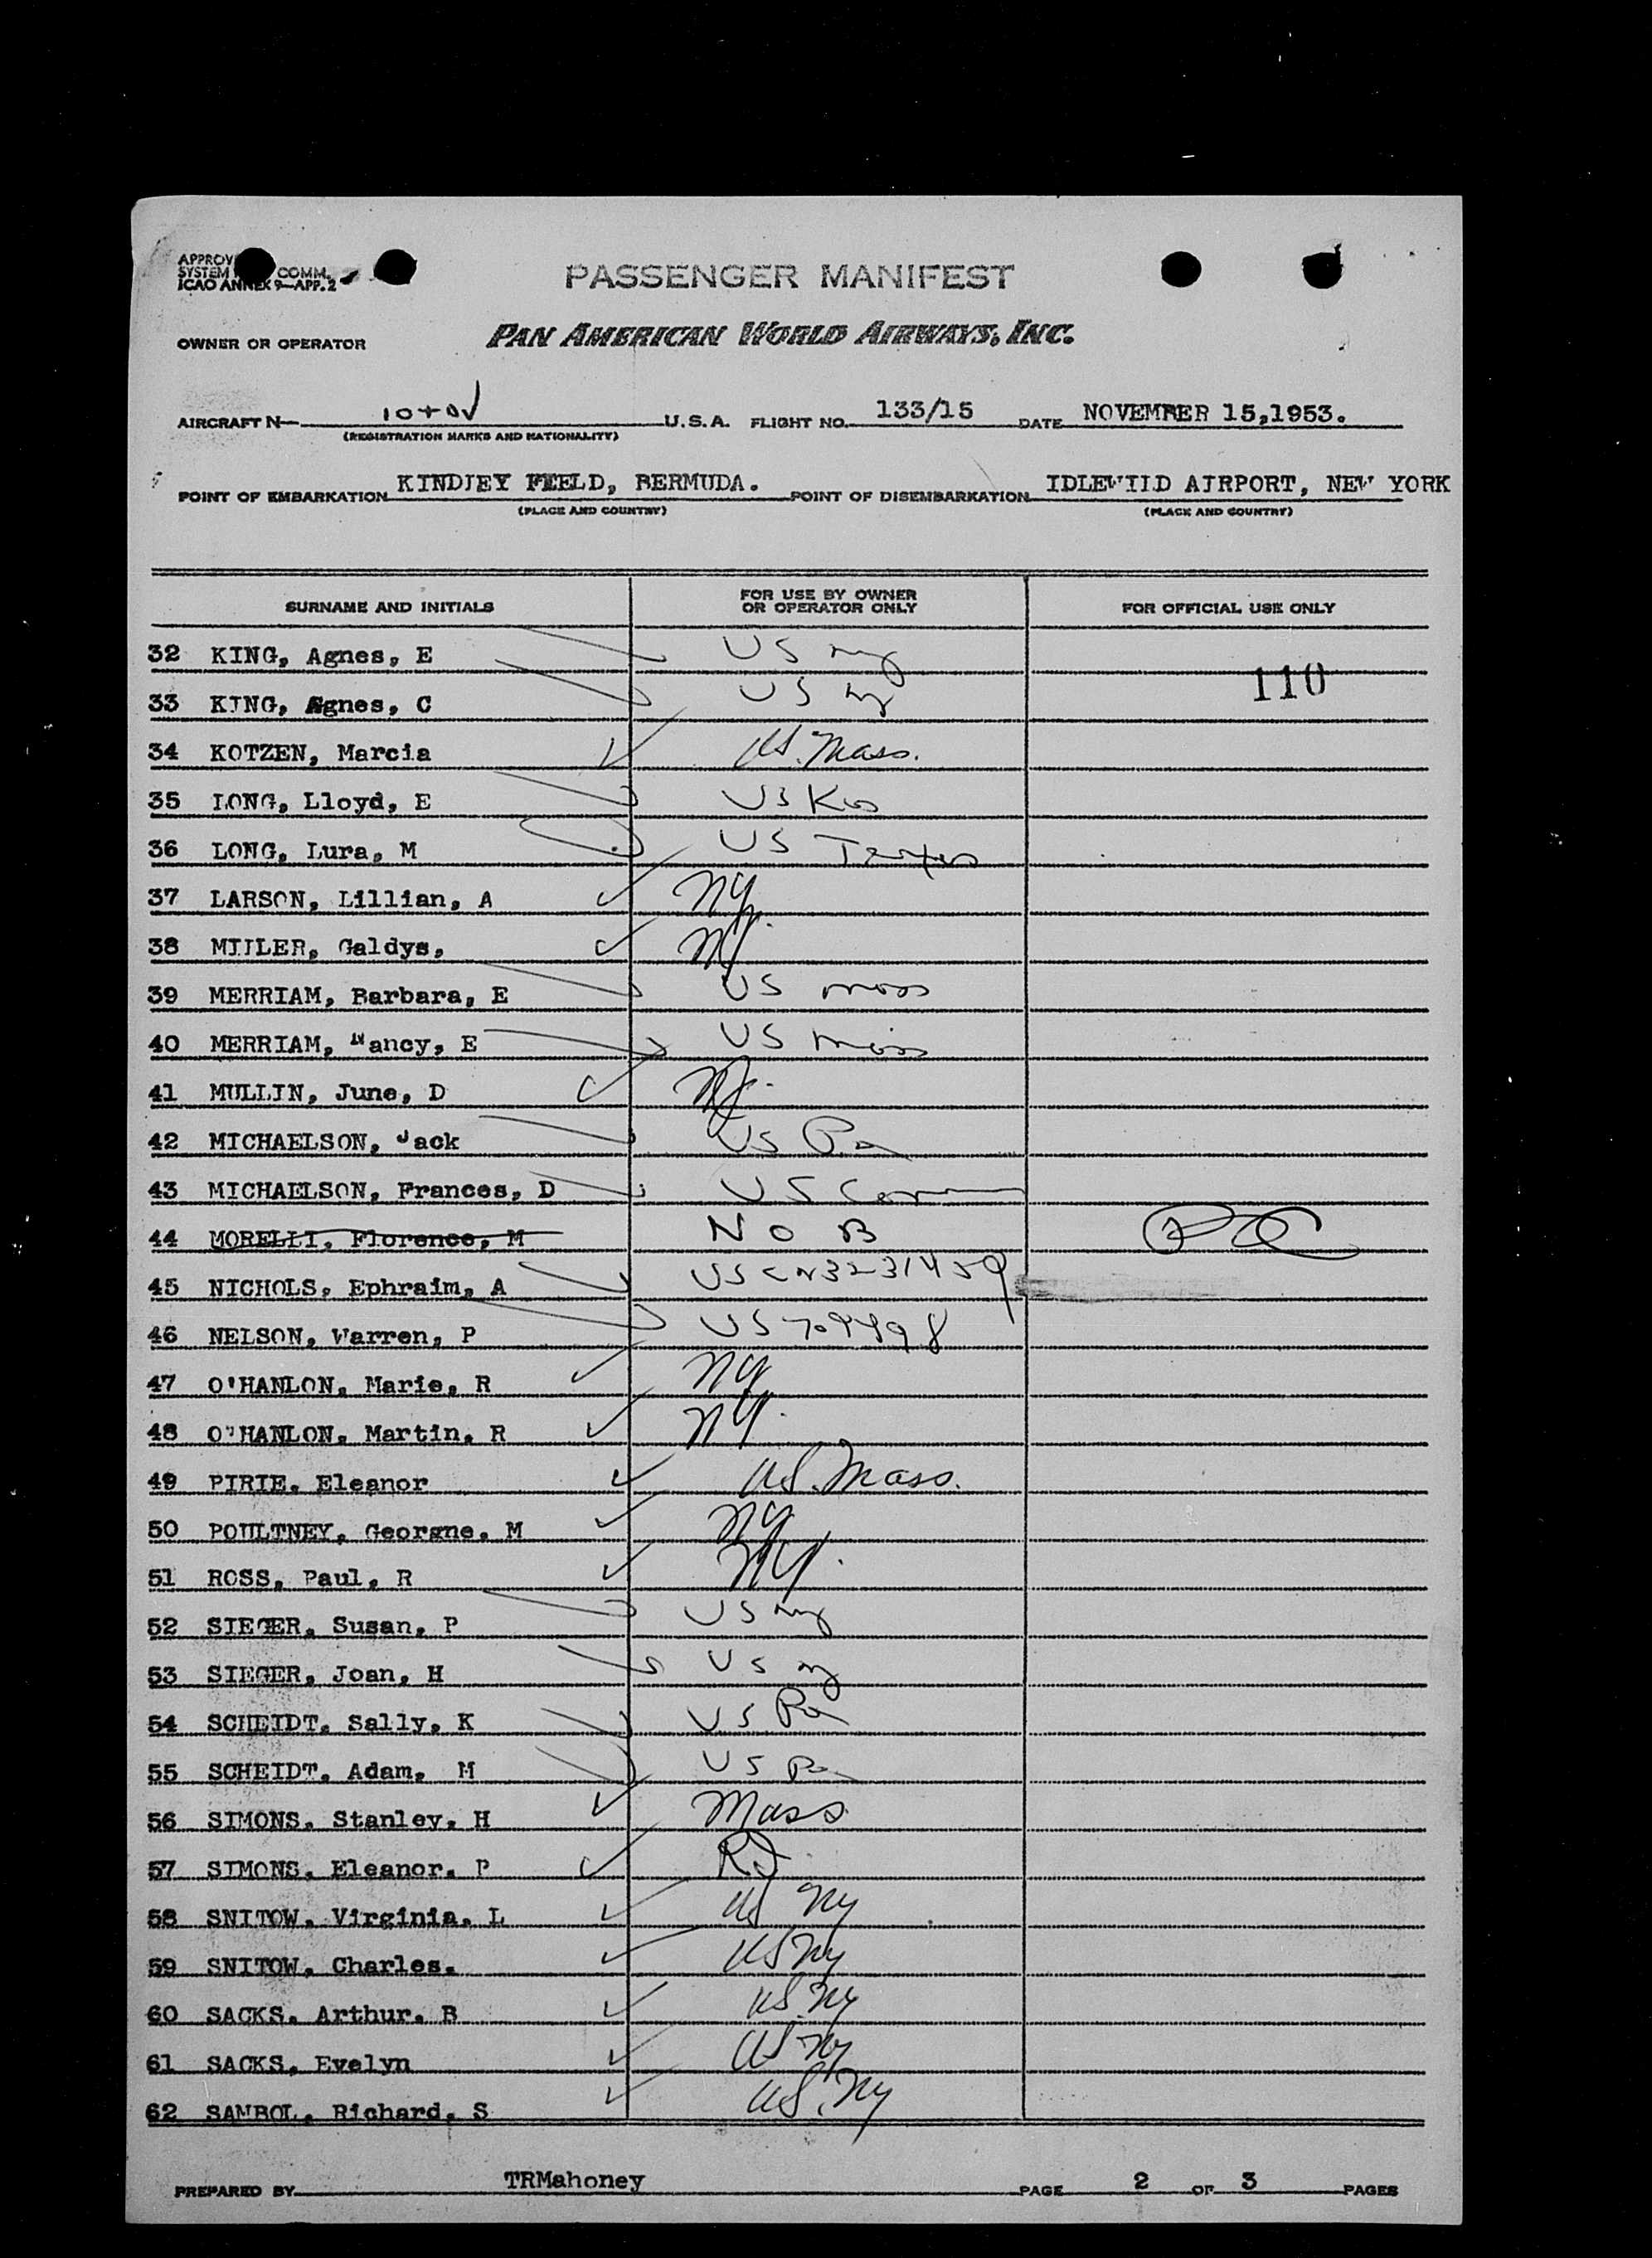 APPROV
SYSTEM COMM.
ICAO ANNEX 9—APP. 2
PASSENGER MANIFEST
OWNER OR OPERATOR PAN AMERICAN WORLD AIRWAYS, INC.
AIRCRAFT N— U.S.A. FLIGHT NO. 133/15 DATE NOVEMBER 15,1953.
(REGISTRATION MARKS AND NATIONALITY)
POINT OF EMBARKATION KINDLEY FEELD, BERMUDA. POINT OF DISEMBARKATION IDLEWILD AIRPORT, NEW YORK
(PLACE AND COUNTRY) (PLACE AND COUNTRY)
SURNAME AND INITIALS FOR USE BY OWNER OR OPERATOR ONLY FOR OFFICIAL USE ONLY
32 KING, Agnes, E US ny
33 KING, Agnes, C US ny 110
34 KOTZEN, Marcia US. Mass.
35 LONG, Lloyd, E US
36 LONG, Lura, M US Texas
37 LARSON, Lillian, A NY.
38 MILLER, Galdys, NY
39 MERRIAM, Barbara, E US mass
40 MERRIAM, Nancy, E US mass
41 MULLIN, June, D
42 MICHAELSON, Jack US Pa
43 MICHAELSON, Frances, D US Conn
44 MORELLI, Florence, M N O B
45 NICHOLS, Ephraim, A US
46 NELSON, Warren, P US 709498
47 O'HANLON, Marie, R NY
48 O'HANLON, Martin, R NY.
49 PIRIE, Eleanor US. Mass.
50 POULTNEY, Georgne, M NY
51 ROSS, Paul, R NY.
52 SIEGER, Susan, P US ny
53 SIEGER, Joan, H US ny
54 SCHEIDT, Sally, K US Pa
55 SCHEIDT, Adam, M US Pa
56 SIMONS, Stanley, H Mass
57 SIMONS, Eleanor, P RI
58 SNITOW, Virginia, L US Ny
59 SNITOW, Charles. US Ny
60 SACKS, Arthur, B US. Ny
61 SACKS, Evelyn US Ny
62 SAMBOL, Richard, S US. Ny
PREPARED BY TRMahoney PAGE 2 OF 3 PAGES